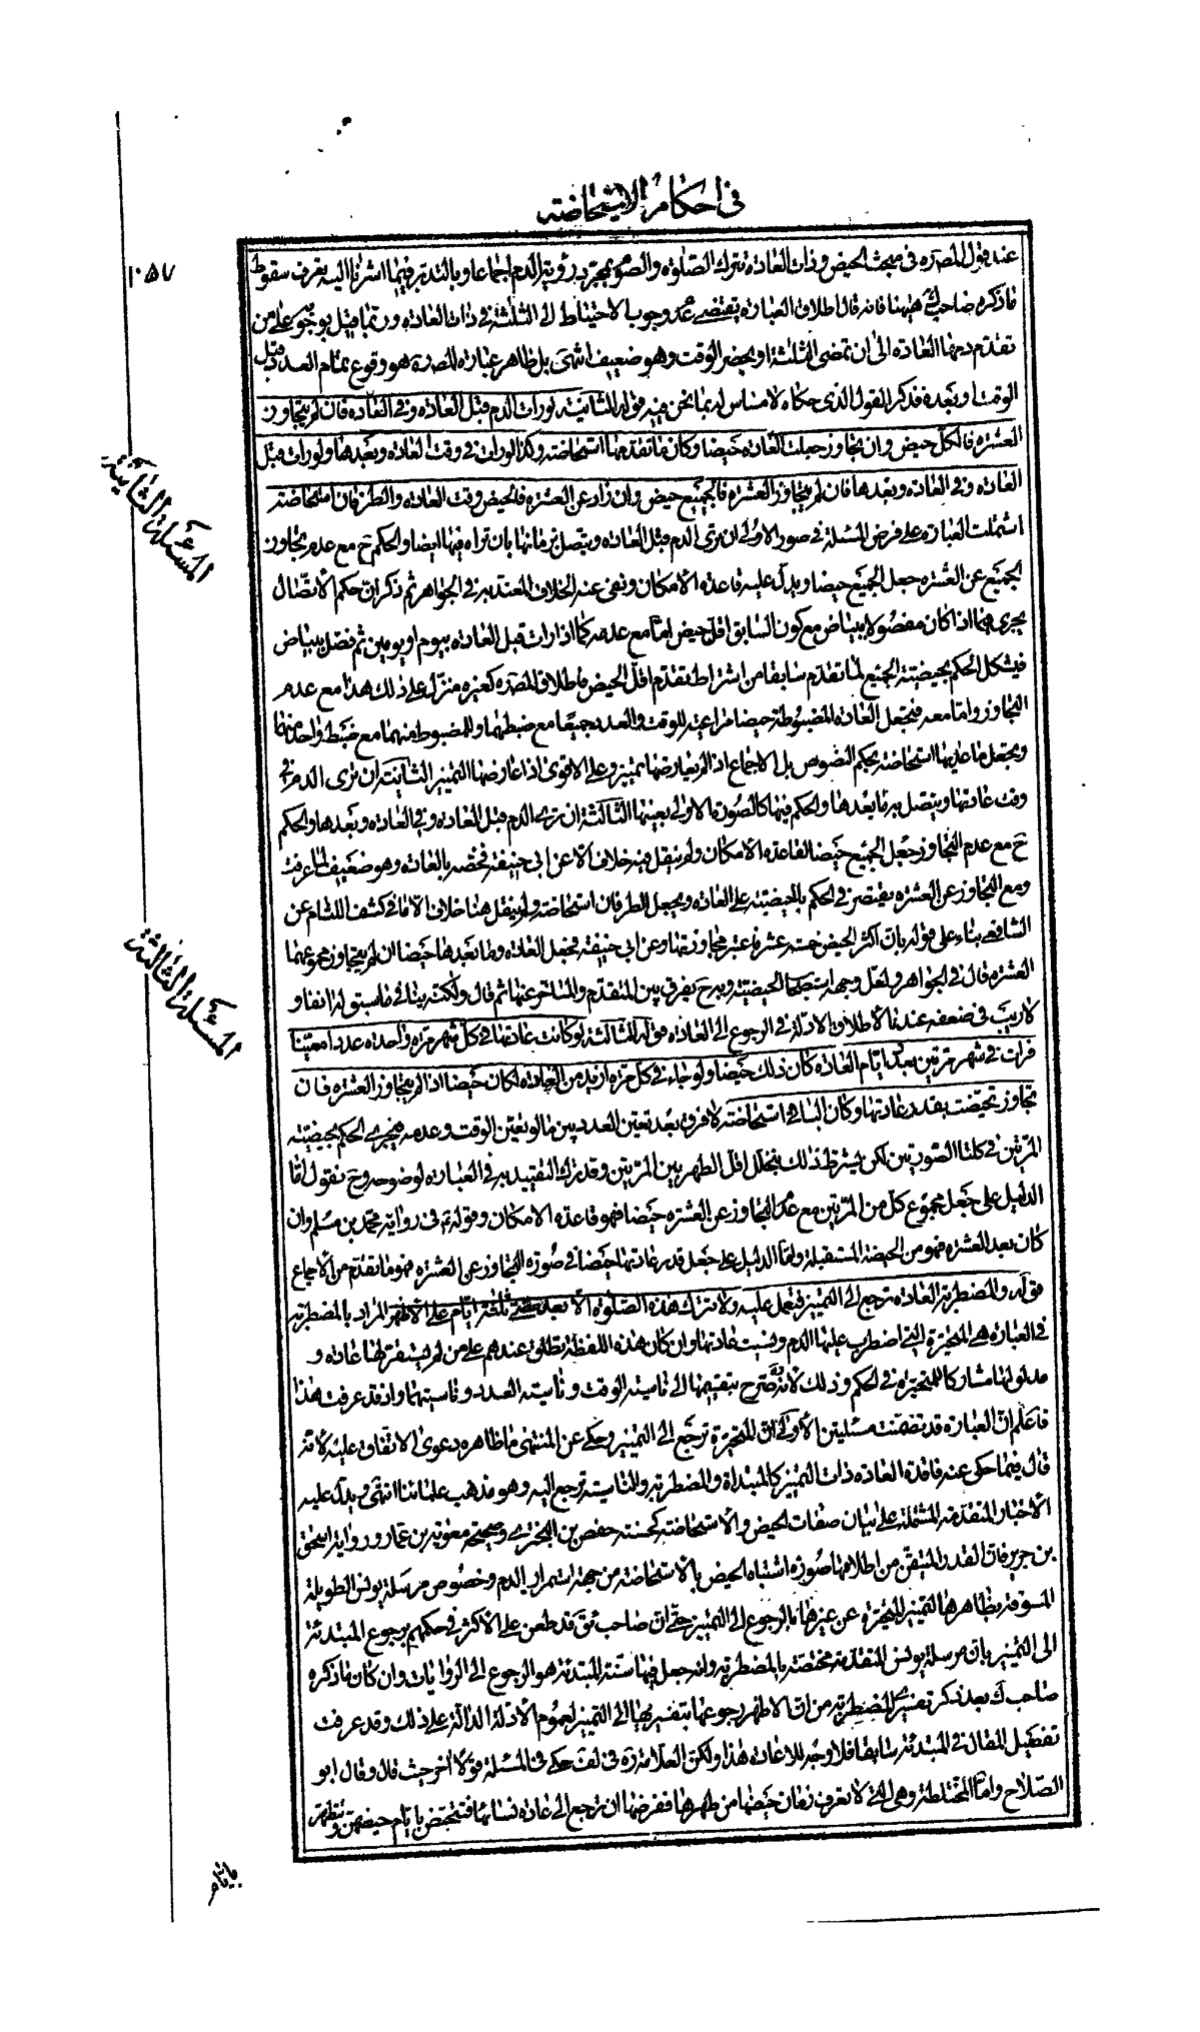 في احكام الاستحاضة
١٠٥٧
عند قول المصره في مبحث الحيض وذات العادة تترك الصلوة والصوم بمجرد رؤية الدم اجماعا وبالتدبر فيما اشرنا اليه يعرف سقوط
ما ذكره صاحب ك هيهنا فانه قال اطلاق العبارة يقتضي عدم وجوب الاحتياط الى الثلثة في ذات العادة وربما قيل بوجوبه على من
تقدم دمها العادة الى ان تمضى الثلثة او يحضر الوقت وهو ضعيف انتهى بل ظاهر عبارة المصره هو وقوع تمام العدد قبل
الوقت او بعده فذكر القول الذي حكاه لا مساس له بما نحن فيه قوله الثانية لو رات الدم قبل العادة وفي العادة فان لم يتجاوز
العشرة فالكل حيض وان تجاوز جعلت العادة حيضا وكان ما تقدمها استحاضة وكذا لو رات في وقت العادة وبعدها ولو رات قبل
العادة وفي العادة وبعدها فان لم يتجاوز العشرة فالجميع حيض وان زاد عن العشرة فالحيض وقت العادة والطرفان استحاضة
المسئلة الثانية
اشتملت العبارة على فرض المسئلة في صور الاولى ان ترى الدم قبل العادة ويتصل بزمانها بان تراه فيها ايضا والحكم ح مع عدم تجاوز
الجميع عن العشرة جعل الجميع حيضا ويدل عليه قاعدة الامكان ونفى عنه الخلاف المعتد به في الجواهر ثم ذكر ان حكم الاتصال
يجرى فيما اذا كان مفصولا ببياض مع كون السابق اقل حيض اما مع عدمه كما اذا رات قبل العادة بيوم او يومين ثم فصل ببياض
فيشكل الحكم بحيضية الجميع لما تقدم سابقا من اشتراط تقدم اقل الحيض فاطلاق المصره كغيره منزل على ذلك هذا مع عدم
التجاوز واما معه فتجعل العادة المضبوطة حيضا مراعية للوقت والعدد جميعا مع ضبطهما وللمضبوط منهما مع ضبط واحد منهما
ويجعل ما عداها استحاضة بحكم النصوص بل الاجماع اذا لم يعارضها تمييز وعلى الاقوى اذا عارضها التمييز الثانية ان ترى الدم في
وقت عادتها ويتصل به ما بعدها والحكم فيها كالصورة الاولى بعينها الثالثة ان ترى الدم قبل العادة وفي العادة وبعدها والحكم
ح مع عدم التجاوز جعل الجميع حيضا لقاعدة الامكان ولم ينقل فيه خلاف الا عن ابي حنيفة فخصه بالعادة وهو ضعيف لما عرفت
ومع التجاوز عن العشرة يقتصر في الحكم بالحيضية على العادة ويجعل الطرفان استحاضة ولم ينقل هنا خلاف الا ما في كشف اللثام عن
الشافعي بناء على قوله بان اكثر الحيض خمسة عشر فاعتبر مجاوزتها وعن ابي حنيفة فجعل العادة وما بعدها حيضا ان لم يتجاوز مجموعهما
المسئلة الثالثة
العشرة قال في الجواهر ولعل وجهه استصحاب الحيضية وبه ح يفرق بين المتقدم والمتاخر عنها ثم قال ولكنه ينافي ما سبق له انفا و
لا ريب في ضعفه عندنا لاطلاق الادلة في الرجوع الى العادة قوله الثالثة لو كانت عادتها في كل شهر مرة واحدة عددا معينا
فرات في شهر مرتين بعدد ايام العادة كان ذلك حيضا ولو جاء في كل مرة ازيد من العادة لكان حيضا اذا لم يتجاوز العشرة فان
تجاوز تحيضت بقدر عادتها وكان الباقي استحاضة لا فرق بعد تعين العدد بين ما لو تعين الوقت وعدمه فيجرى الحكم بحيضية
المرتين في كلتا الصورتين لكن يشترط ذلك بتخلل اقل الطهر بين المرتين وقد ترك التقييد به في العبارة لوضوحه وح نقول اما
الدليل على جعل مجموع كل من المرتين مع عدم التجاوز عن العشرة حيضا فهو قاعدة الامكان وقوله ع في رواية محمد بن مسلم وان
كان بعد العشرة فهو من الحيضة المستقبلة واما الدليل على جعل قدر عادتها حيضا في صورة التجاوز عن العشرة فهو ما تقدم من الاجماع
قوله والمضطربة العادة ترجع الى التمييز فتعمل عليه ولا تترك هذه الصلوة الا بعد مضي ثلثة ايام على الاظهر المراد بالمضطربة
في العبارة هي المتحيرة التي اضطرب عليها الدم ونسيت عادتها وان كان هذه اللفظة تطلق عندهم على من لم يستقر لها عادة و
على انها مشاركا للمتحيرة في الحكم وذلك لانه صرح بتقسيمها الى ناسية الوقت وناسية العدد وناسيتهما واذ قد عرفت هذا
فاعلم ان العبارة قد تضمنت مسئلتين الاولى ان المتحيرة ترجع الى التمييز وحكى عن المنتهى ما ظاهره دعوى الاتفاق عليه لانه
قال فيما حكى عنه فاقدة العادة ذات التمييز كالمبتداة والمضطربة والناسية ترجع اليه وهو مذهب علمائنا انتهى ويدل عليه
الاخبار المتقدمة المشتملة على بيان صفات الحيض والاستحاضة كحسنة حفص بن البخترى وصحيحة معوية بن عمار ورواية اسحق
بن جرير فان القدر المتيقن من اطلاقها صورة اشتباه الحيض بالاستحاضة من جهة استمرار الدم وخصوص مرسلة يونس الطويلة
المسوقة بظاهرها لتمييز المتحيرة عن غيرها بالرجوع الى التمييز حتى ان صاحب ئق قد طعن على الاكثر في حكمهم برجوع المبتدئة
الى التمييز بان مرسلة يونس المتقدمة مختصة بالمضطربة وانه جعل فيها سنة المبتدئة هو الرجوع الى الروايات وان كان ما ذكره
صاحب ك بعد ذكر تفسير المضطربة من ان الاظهر رجوعها بتفسيريها الى التمييز لعموم الادلة الدالة على ذلك وقد عرفت
تفصيل المقال في المبتدئة سابقا فلا وجه للاعادة هذا ولكن العلامة ره في لف حكى في المسئلة قولا اخر حيث قال وقال ابو
الصلاح واما المختلطة وهي التي لا تعرف زمان حيضها من طهرها ففرضها ان ترجع الى عادة نسائها فتتحيض بايام حيضهن وتطهر
بايام